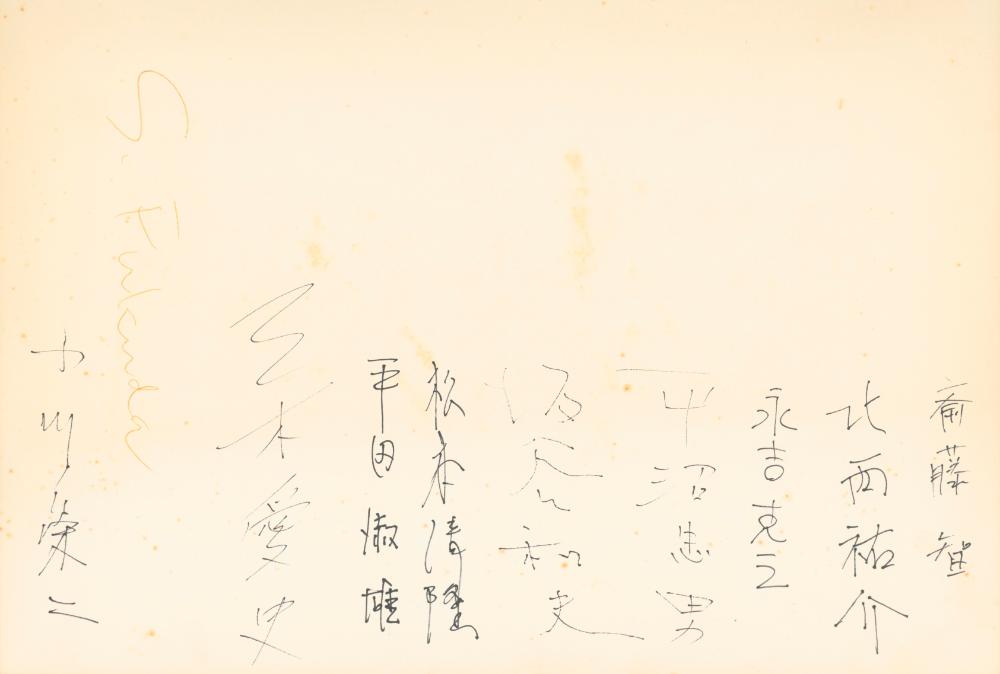 斎藤 智
北西祐介
永吉克之
平沼忠男
谷和史
松本清隆
平田
木愛史
S. Fukuda
小川栄二